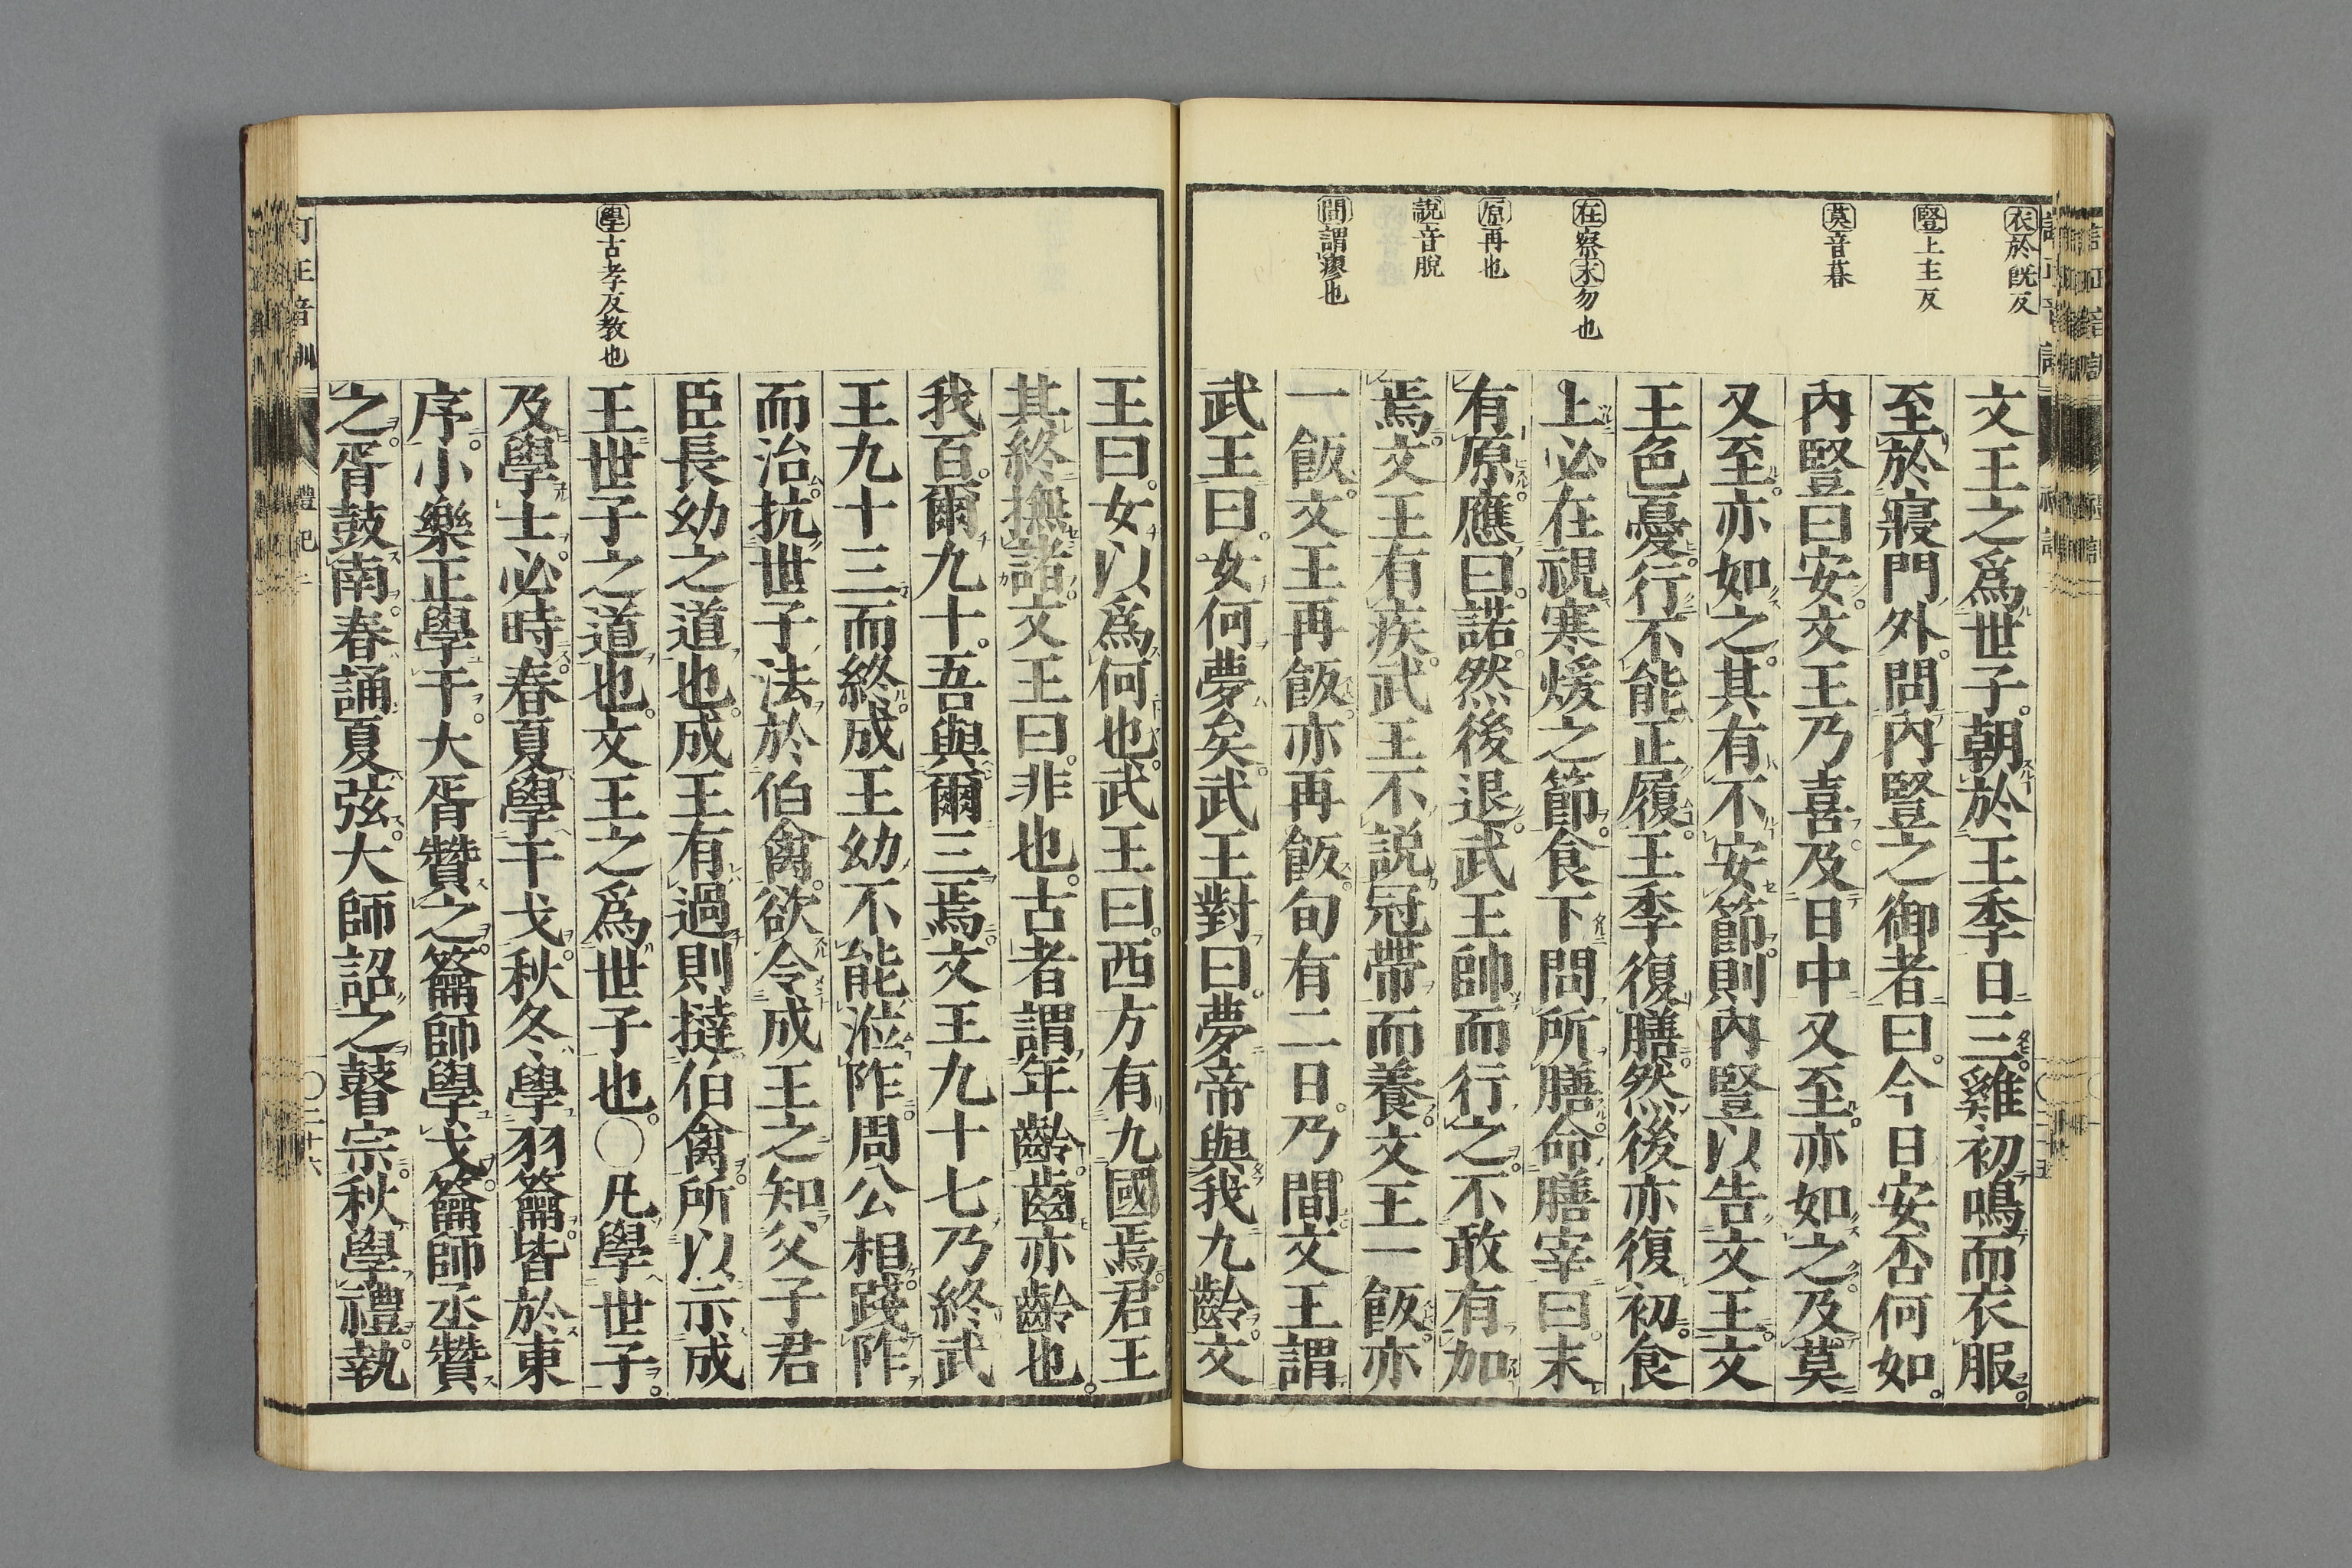 衣於既反
豎上主反
莫音暮
在察末勿也
原再也
説音脱
間謂瘳也
文王之爲世子。朝於王季日三。雞初鳴而衣服。
至於寢門外。問內豎之御者曰。今日安否何如。
內豎曰安。文王乃喜。及日中又至亦如之。及莫
又至。亦如之。其有不安節。則內豎以告文王。文
王色憂。行不能正履。王季復膳。然後亦復初。食
上必在視寒煖之節。食下問所膳。命膳宰曰。末
有原。應曰。諾。然後退。武王帥而行之。不敢有加
焉。文王有疾。武王不説冠帶而養。文王一飯。亦
一飯。文王再飯。亦再飯。旬有二日。乃間。文王謂
武王曰。女何夢矣。武王對曰。夢帝與我九齡。文
王曰。女以爲何也。武王曰。西方有九國焉。君王
其終撫諸。文王曰。非也。古者謂年齡。齒亦齡也。
我百。爾九十。吾與爾三焉。文王九十七乃終。武
王九十三而終。成王幼不能涖阼。周公相。踐阼
而治。抗世子法於伯禽。欲令成王之知父子君
臣長幼之道也。成王有過則撻伯禽。所以示成
王世子之道也。文王之爲世子也。〇凡學世子。
及學士。必時。春夏學干戈。秋冬學羽籥。皆於東
序。小樂正學干。大胥贊之。籥師學戈。籥師丞贊
之。胥鼓南。春誦夏弦。大師詔之。瞽宗。秋學禮。執
學古孝反教也
訂正音訓
禮記二
〇二十六